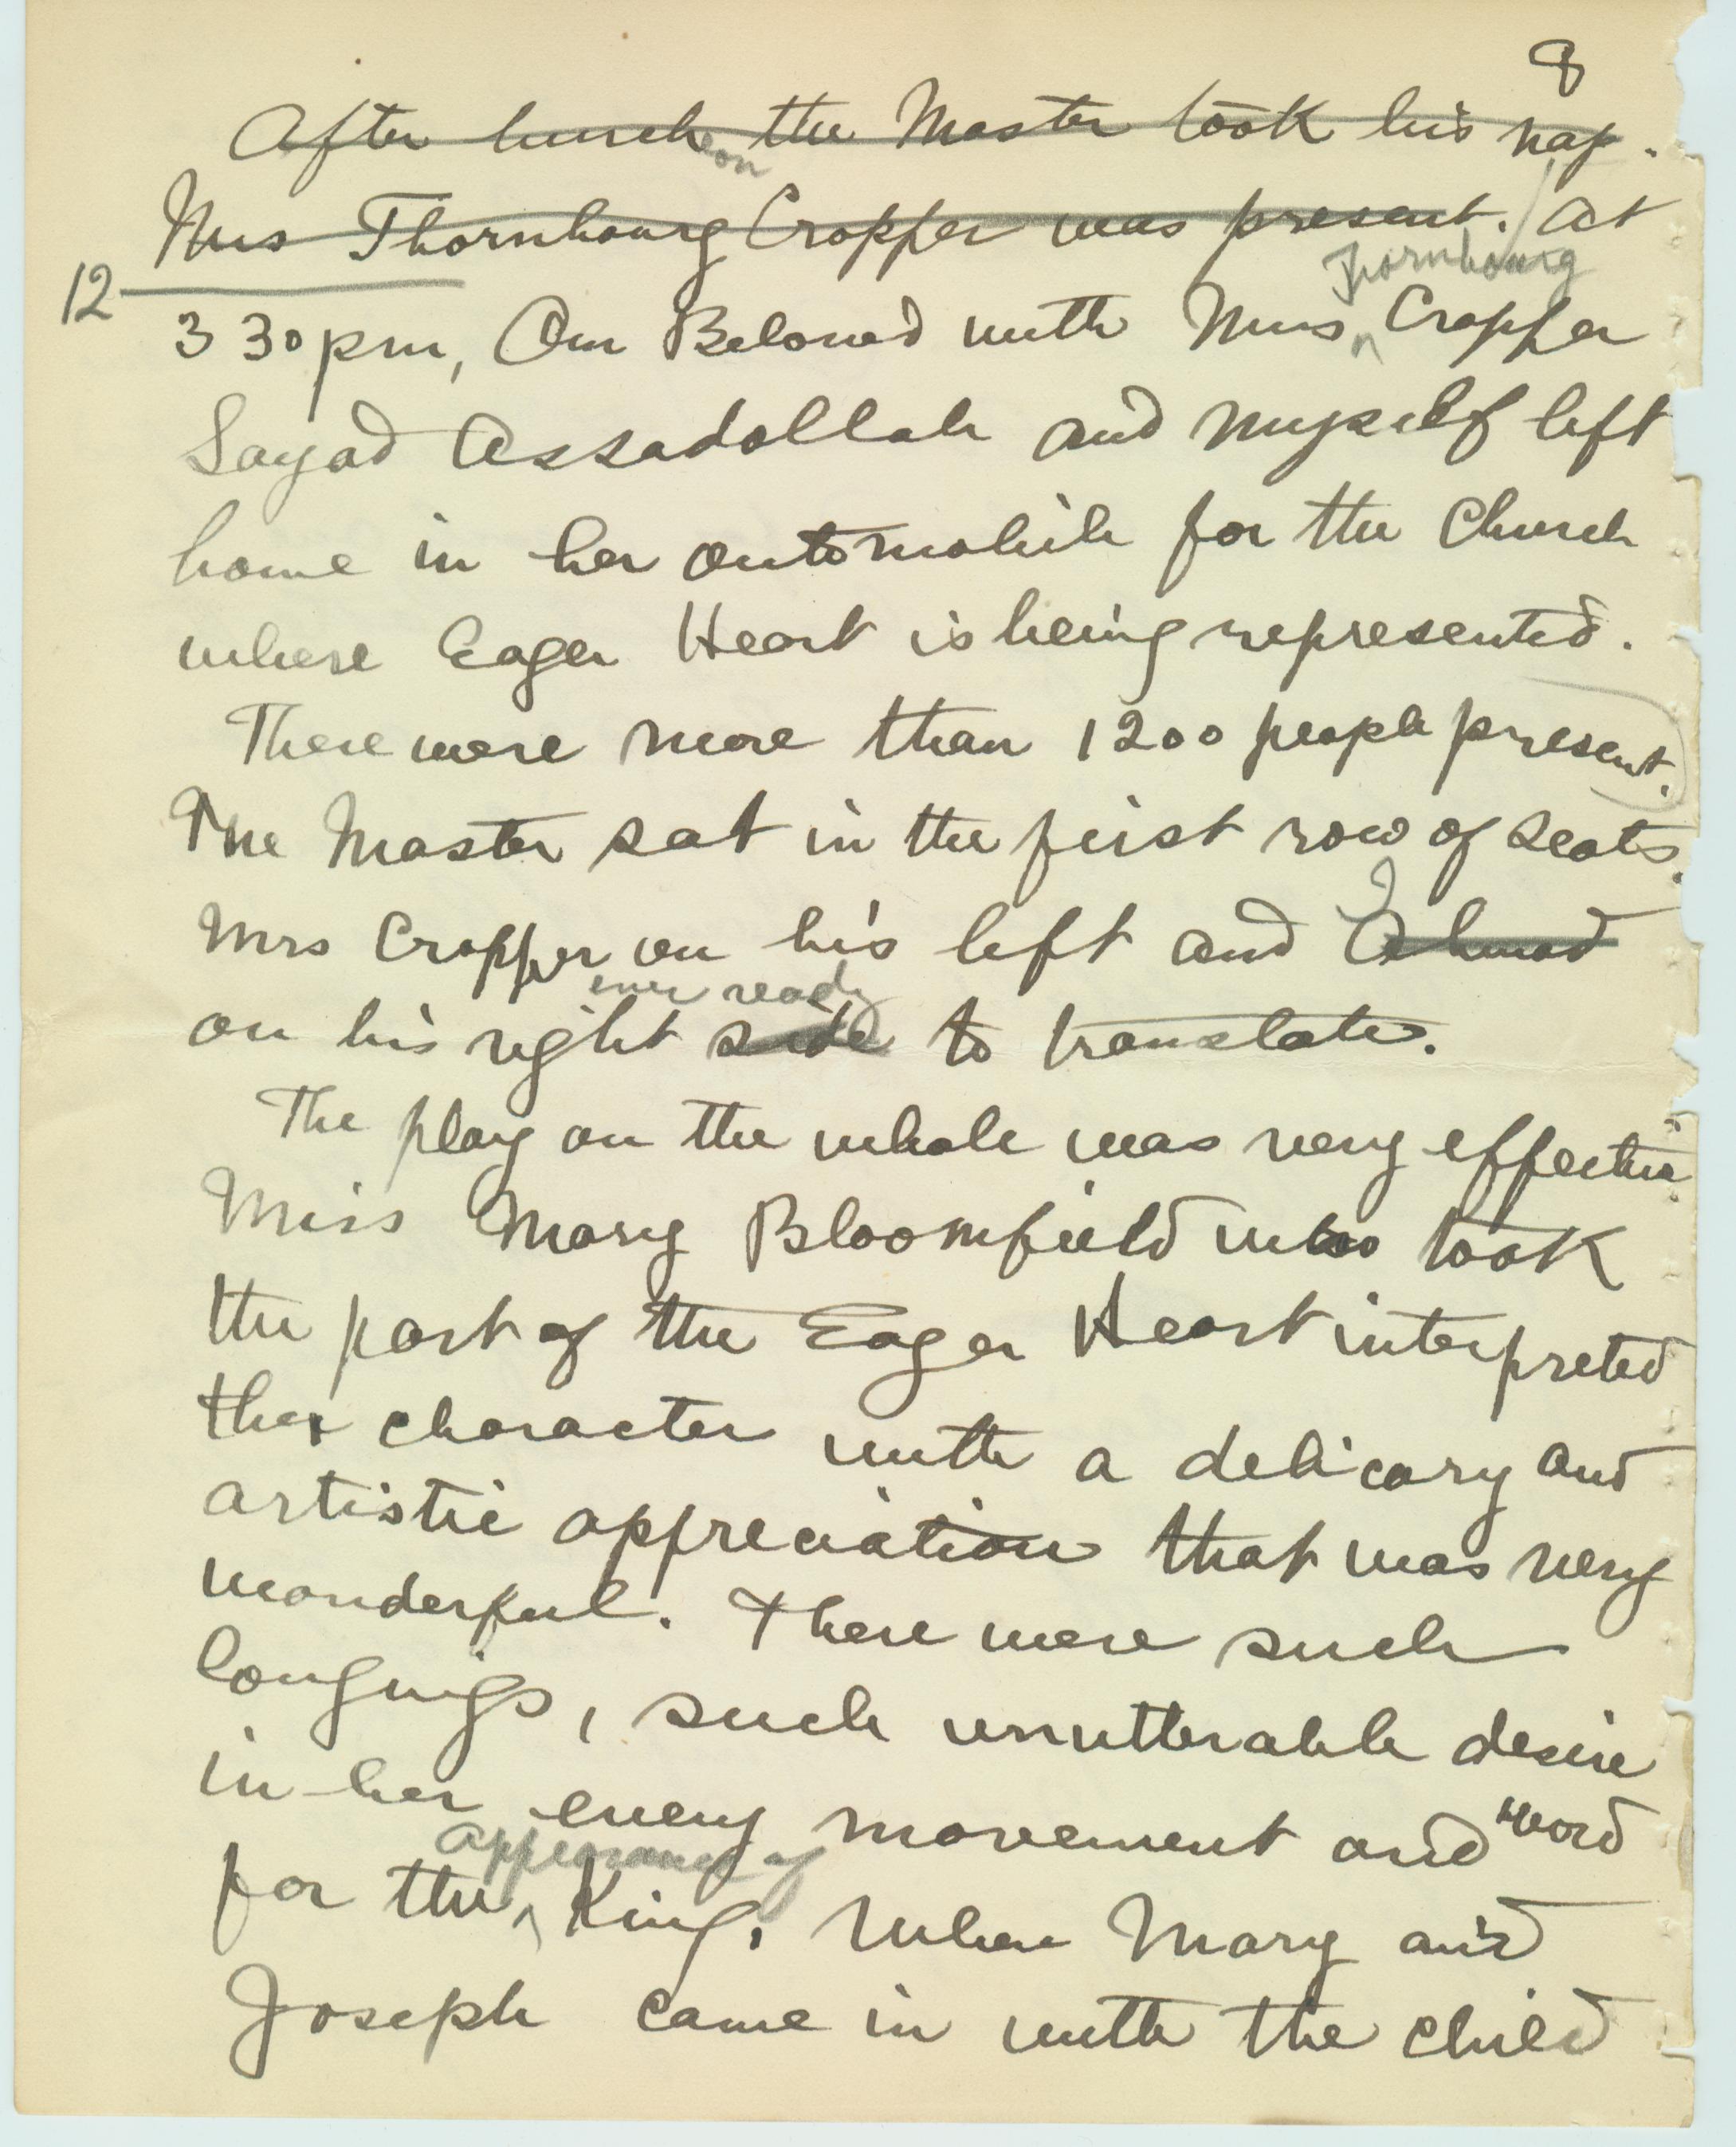 8
After luncheon the Master took his nap.
Mrs Thornbourg Cropper was present. / At
12
Thornbourg
3 30 pm, Our Beloved with Mrs ^ Cropper
Sayad Assadollah and myself left
home in her automobile for the Church
where Eager Heart is being represented.
There were more than 1200 people present.
The Master sat in the first row of seats.
I
Mrs Cropper on his left and Ahmad
ever ready
on his right side to translate.
The play on the whole was very effective.
Miss Mary Bloomfield who took
the part of the Eager Heart interpreted
the character with a delicacy and
artistic appreciation that was very
wonderful. There were such
longings, such unutterable desire
in her every movement and word
appearance of
for the ^ King. When Mary and
Joseph came in with the child